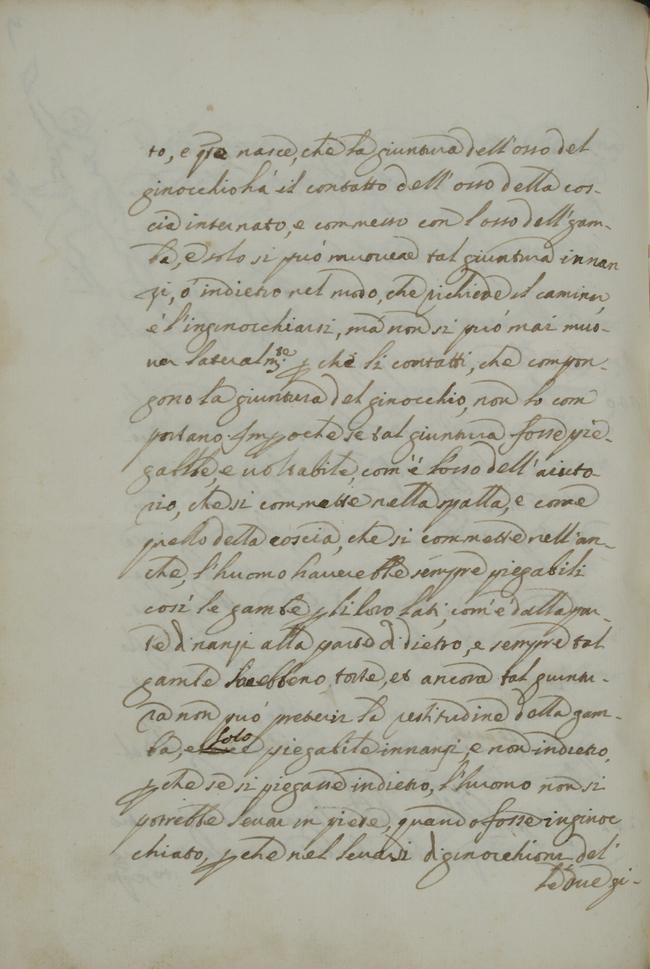 to, e qta nasce, che la giuntura dell'osso del
ginocchio há il contatto dell'osso della cos-
cia internato, e commesso con l'osso dell'gam-
ba, e solo si puó muovere tal giuntura innan
zi, ó indietro nel modo, che richiede il caminar,
é l'inginocchiarsi, má non si puó mai muo-
ver lateralmte, p che li contatti, che compon-
gono la giuntura del ginocchio, non lo com
portano, Impoche se tal giuntura fosse pie-
gabile, e voltabile, com'é l'osso dell'aiuto-
rio, che si commette nella spalla, e come
quello della coscia, che si commette nell'an-
che, l'huomo haverebbe sempre piegabili
cosí le gambe p li loro lati, com'é dalla par-
te d'nanzi alla parte d'dietro, e sempre tal
gambe sarebbeno torte, et ancora tal giuntu-
ra non puó preterir la restitudine dalla gam-
ba, e solo piegabile innanzi, e non indietro,
p che se si piegasse indietro, l'huomo non si
potrebbe levar in piede, quando fosse inginoc
chiato, p che nel levarsi d'ginocchioni del'
le due gi-